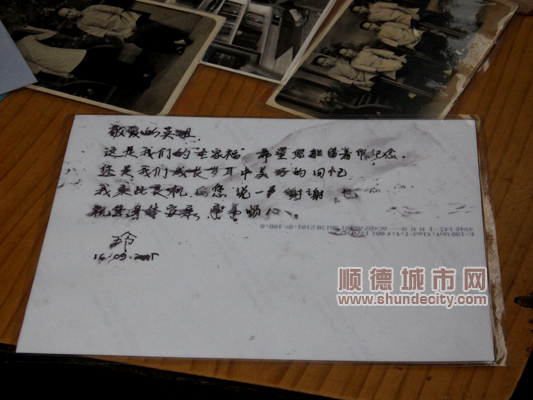 敬爱的英姐.
这是我们的"全家福"希望您能留着作纪念.
您是我们成长岁月中美好的回忆
我乘此良机 向您说一声谢谢，也
祝您身体安康，万事
16.09.2015
顺德城市网
www.shundecity.com